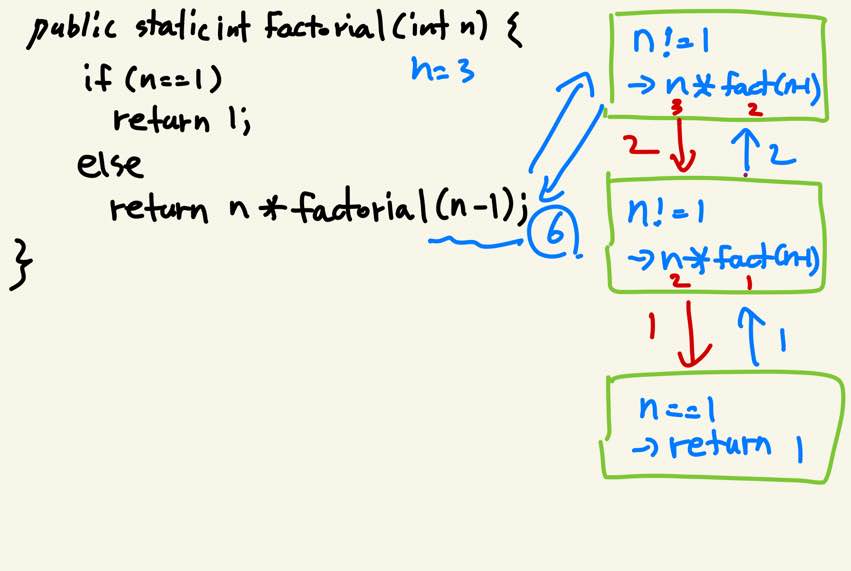 public static int factorial(int n) {
n=3
if (n==1)
return 1;
else
return n*factorial(n-1);
6
}
n!=1
→ n*fact(n-1)
3 2
2 2
n!=1
→ n*fact(n-1)
2 1
1 1
n==1
→ return 1